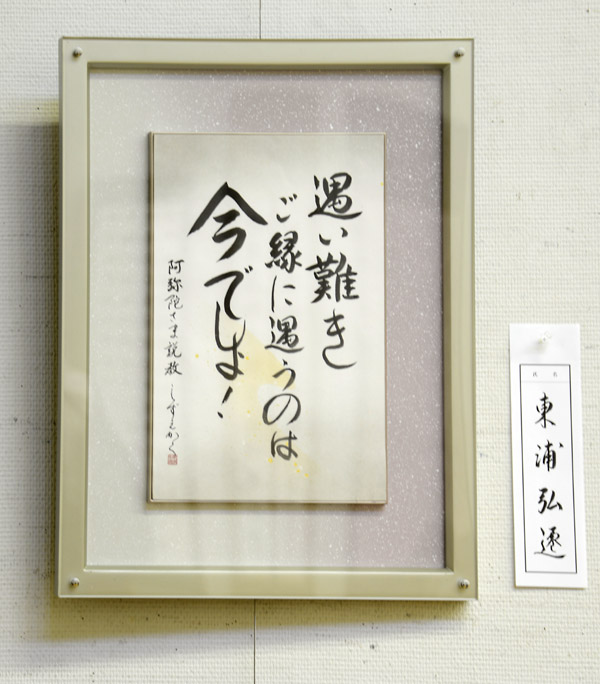 遇い難き
ご縁に遇うのは
今でしょ！
阿弥陀さま説教 しずえかく
氏 名
東浦弘遷